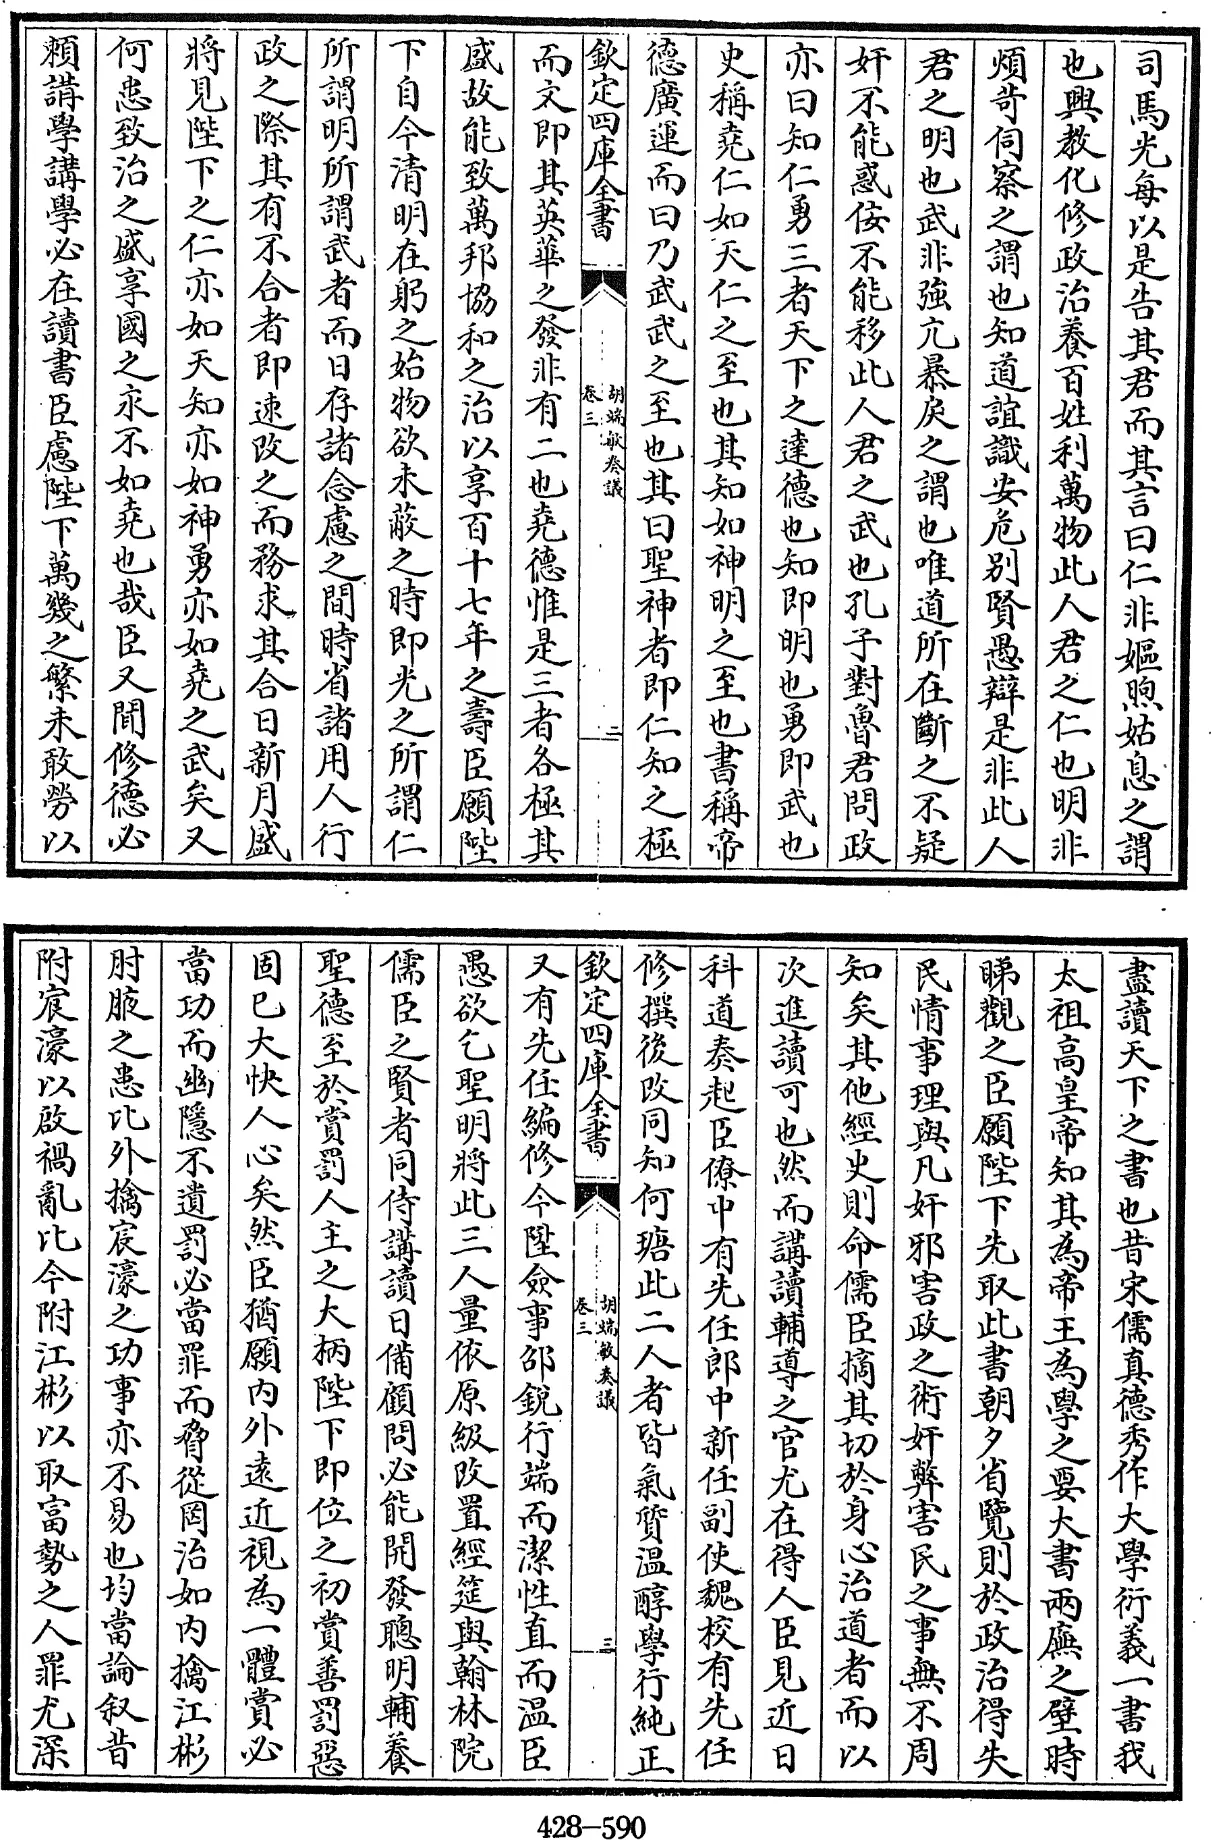 司馬光每以是告其君而其言曰仁非嫗煦姑息之謂
也興教化修政治養百姓利萬物此人君之仁也明非
煩苛伺察之謂也知道誼識安危别賢愚辯是非此人
君之明也武非強亢暴戾之謂也唯道所在斷之不疑
奸不能惑佞不能移此人君之武也孔子對魯君問政
亦曰知仁勇三者天下之達德也知即明也勇即武也
史稱堯仁如天仁之至也其知如神明之至也書稱帝
德廣運而曰乃武武之至也其曰聖神者即仁知之極
欽定四庫全書
胡端敏奏議
卷三
二
而文即其英華之發非有二也堯德惟是三者各極其
盛故能致萬邦協和之治以享百十七年之壽臣願陛
下自今清明在躬之始物欲未蔽之時即光之所謂仁
所謂明所謂武者而日存諸念慮之間時省諸用人行
政之際其有不合者即速改之而務求其合日新月盛
將見陛下之仁亦如天知亦如神勇亦如堯之武矣又
何患致治之盛享國之永不如堯也哉臣又聞修德必
賴講學講學必在讀書臣慮陛下萬幾之繁未敢勞以
盡讀天下之書也昔宋儒真德秀作大學衍義一書我
太祖高皇帝知其為帝王為學之要大書兩廡之壁時
睇觀之臣願陛下先取此書朝夕省覽則於政治得失
民情事理與凡奸邪害政之術奸弊害民之事無不周
知矣其他經史則命儒臣摘其切於身心治道者而以
次進讀可也然而講讀輔導之官尤在得人臣見近日
科道奏起臣僚中有先任郎中新任副使魏校有先任
修撰後改同知何瑭此二人者皆氣質温醇學行純正
欽定四庫全書
胡端敏奏議
卷三
三
又有先任編修今陞僉事邵銳行端而潔性直而温臣
愚欲乞聖明將此三人量依原級改置經筵與翰林院
儒臣之賢者同侍講讀日備顧問必能開發聰明輔養
聖德至於賞罰人主之大柄陛下即位之初賞善罰惡
固已大快人心矣然臣猶願内外遠近視為一體賞必
當功而幽隱不遺罰必當罪而脅從罔治如内擒江彬
肘腋之患比外擒宸濠之功事亦不易也均當論叙昔
附宸濠以啟禍亂比今附江彬以取富勢之人罪尤深
428-590